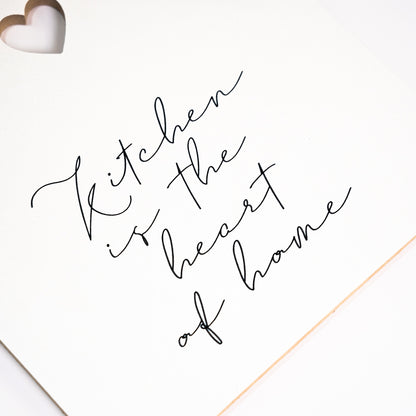 Kitchen
is the
heart
of home